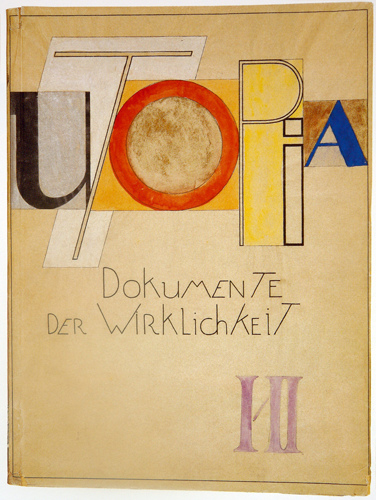 UTOPiA
DOKUMENTE
DER WiRKLichKEiT
I/II